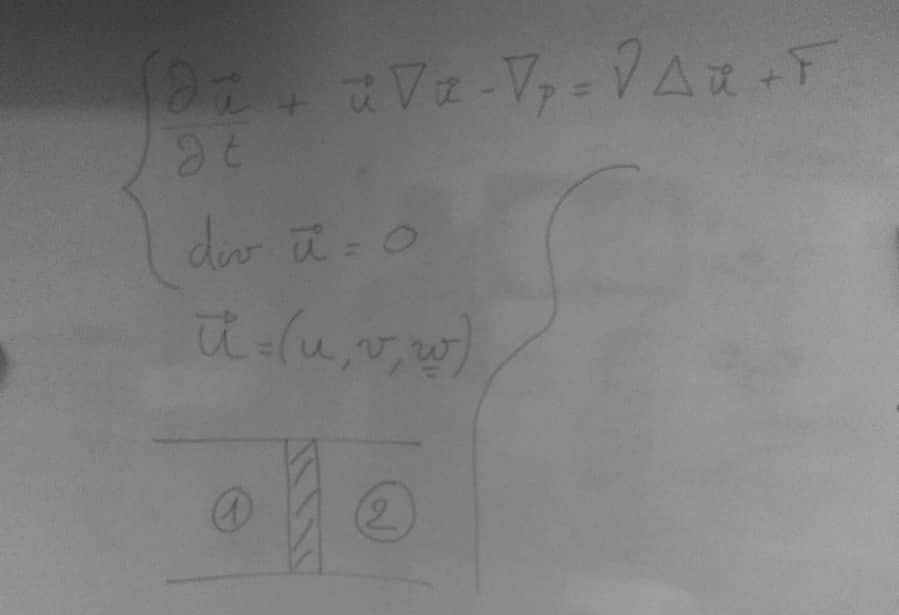 ∂u⃗/∂t + u⃗ ∇ u⃗ - ∇p = ν Δ u⃗ + F
div u⃗ = 0
u⃗ = (u, v, w)
① ②